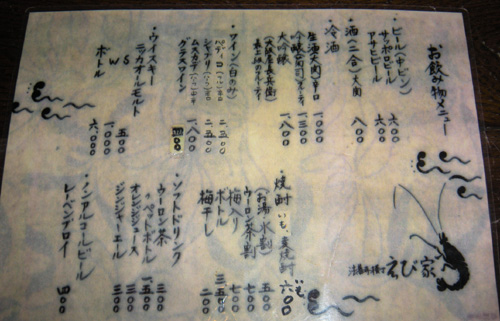 お飲み物メニュー
・ビール(中ビン)
サッポロビール 六〇〇
アサヒビール 六〇〇
・酒(二合)大関 八〇〇
・冷酒
生酒大関辛口 一、〇〇〇
一、三〇〇
大吟醸 一、八〇〇
・ワイン(白のみ)
二、三〇〇
シャブリ 二、五〇〇
ムスカデ 一、八〇〇
グラスワイン 四〇〇
・ウイスキー
ニッカオールモルト
W 一、〇〇〇
ボトル 六、〇〇〇
・焼酎 いも、麦焼酎 六〇〇
(お湯・水割) 五〇〇
ウーロン茶割 七〇〇
梅入り 七〇〇
ボトル 三、五〇〇
梅干し 二〇〇
・ソフトドリンク
ウーロン茶 三〇〇
ペットボトル 一、五〇〇
オレンジジュース 三〇〇
ジンジャーエール 三〇〇
・ノンアルコールビール
レーベンブロイ 四〇〇
えび家